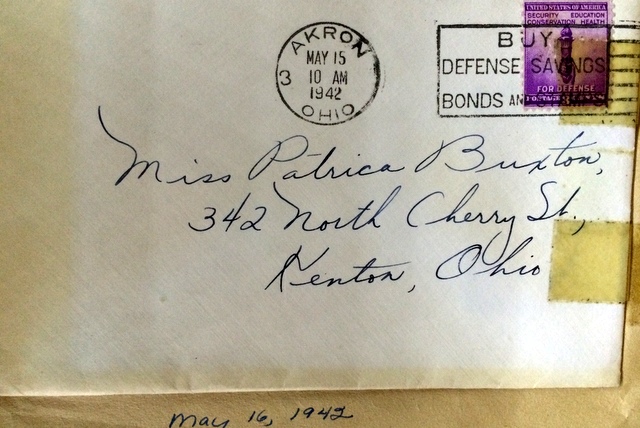 UNITED STATES OF AMERICA
SECURITY EDUCATION
CONSERVATION HEALTH
FOR DEFENSE
POSTAGE
AKRON
MAY 15
3 10 AM
1942
OHIO
BUY
DEFENSE SAVINGS
BONDS AND
Miss Patrica Buxton,
342 North Cherry St.,
Kenton, Ohio
May 16, 1942